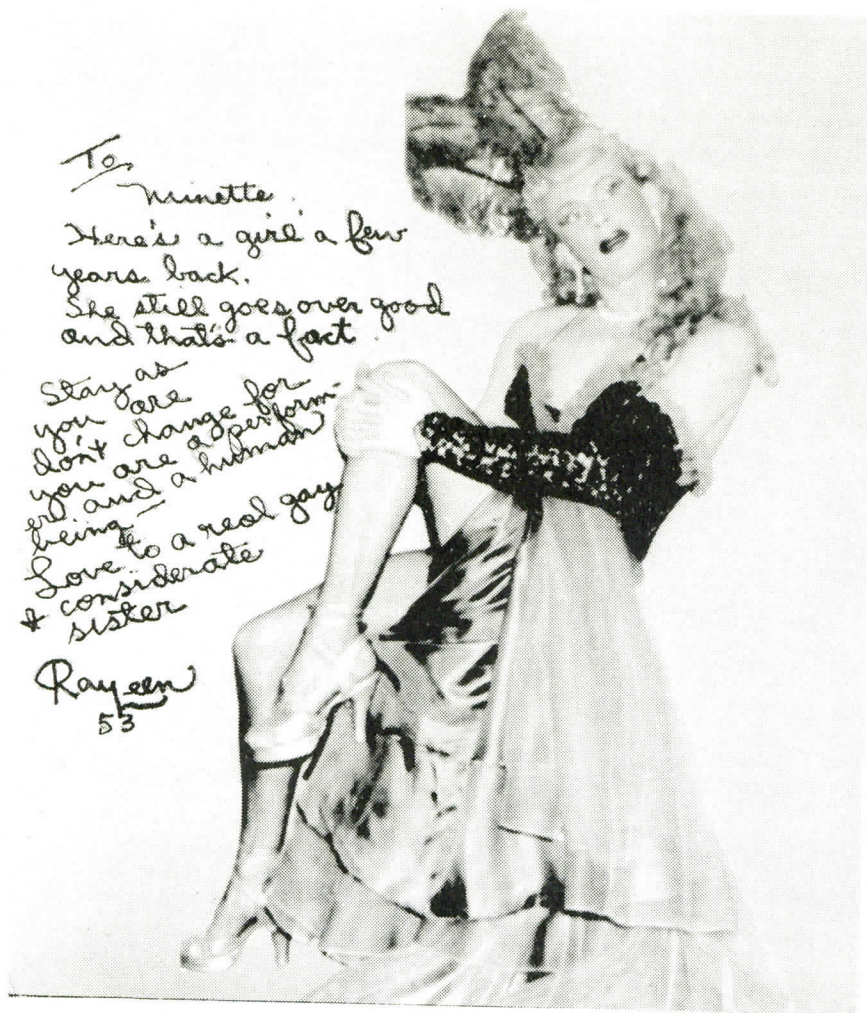 To
Minette
Here's a girl a few
years back.
She still goes over good
and that's a fact
Stay as
you are
don't change for
you are a perform-
er and a human
being—
Love to a real gay
& considerate
sister
Rayeen
53